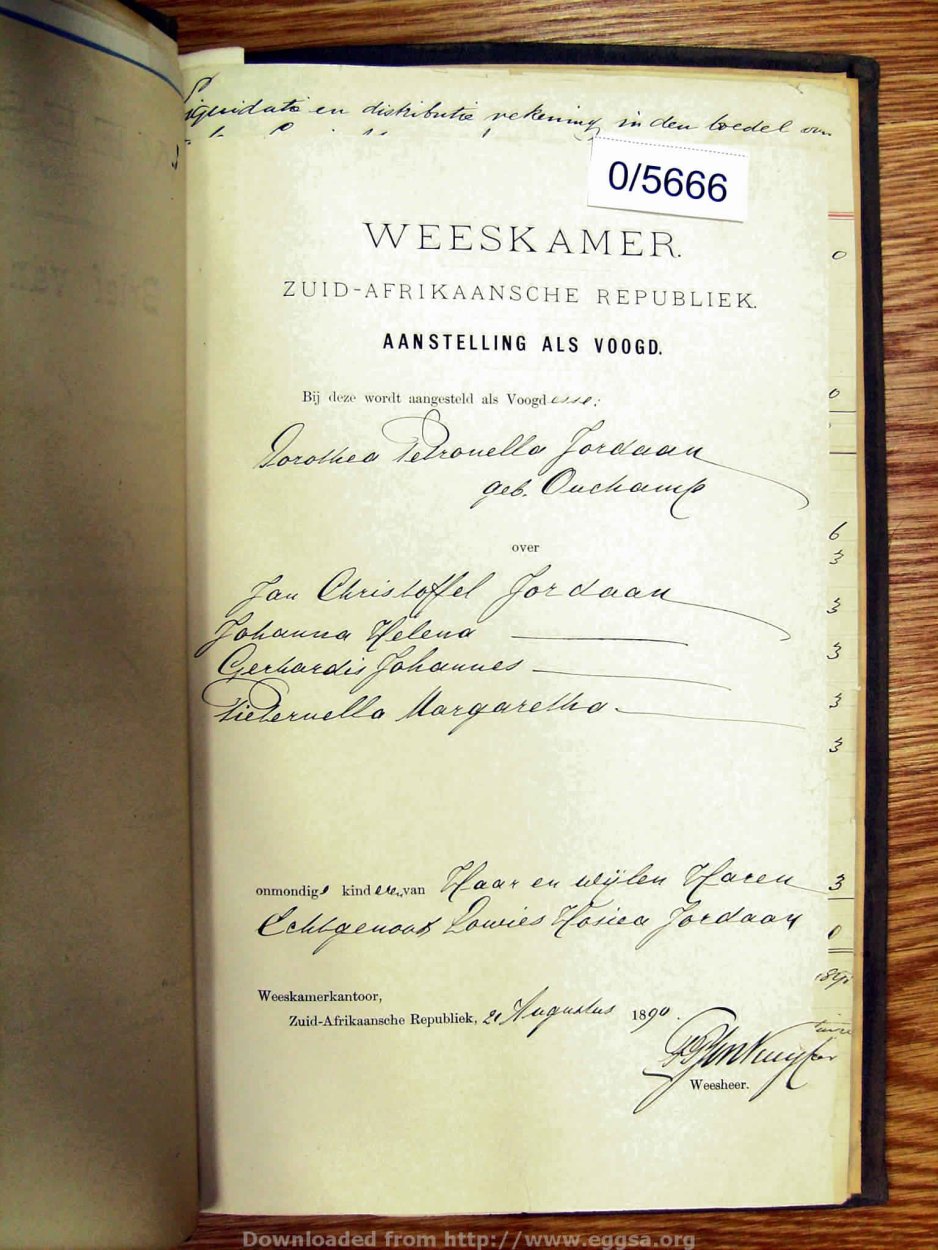 Liquidatie en distributie rekening in den boedel van
0/5666
WEESKAMER.
ZUID-AFRIKAANSCHE REPUBLIEK.
AANSTELLING ALS VOOGD.
Bij deze wordt aangesteld als Voogdesse:
Dorothea Petronella Jordaan
geb. Ouchamp
over
Jan Christoffel Jordaan
Johanna Helena
Gerhardis Johannes
Pieternella Margaretha
onmondige kinderen van Haar en wijlen Haren
Echtgenoot Lowies Hosiea Jordaan
Weeskamerkantoor,
Zuid-Afrikaansche Republiek, 21 Augustus 1890.
Weesheer.
0
0
6
3
3
3
3
3
3
0
Downloaded from http://www.eggsa.org